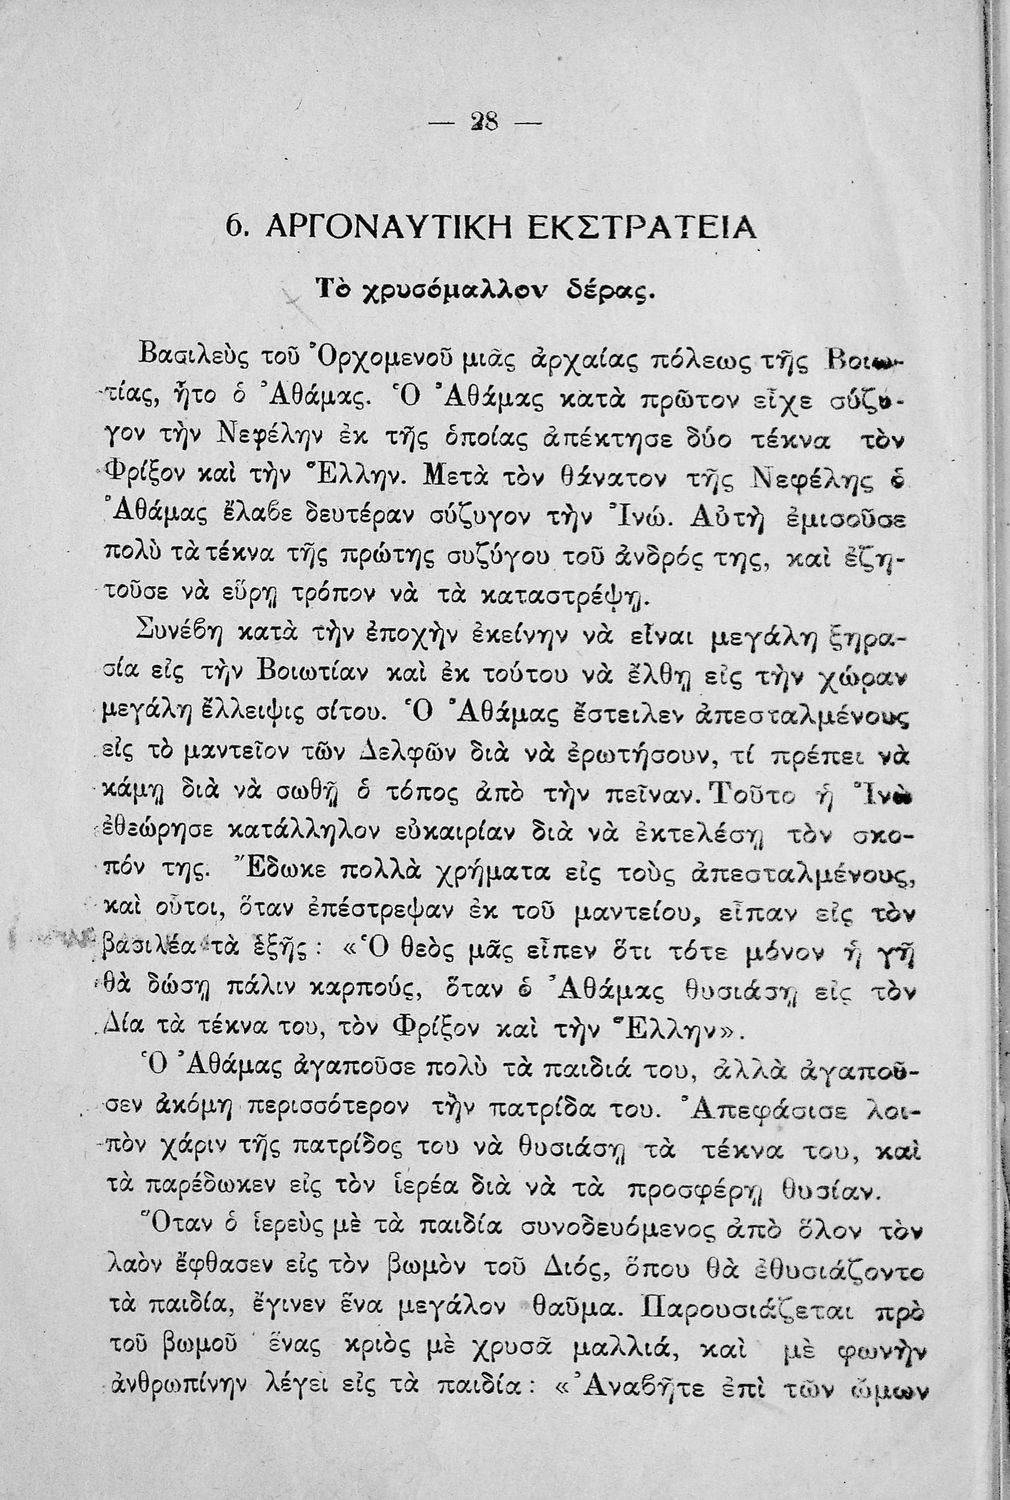 — 28 —
6. ΑΡΓΟΝΑΥΤΙΚΗ ΕΚΣΤΡΑΤΕΙΑ
Τὸ χρυσόμαλλον δέρας.
Βασιλεὺς τοῦ Ὀρχομενοῦ μιᾶς ἀρχαίας πόλεως τῆς Βοιω-
τίας, ἦτο ὁ Ἀθάμας. Ὁ Ἀθάμας κατὰ πρῶτον εἶχε σύζυ-
γον τὴν Νεφέλην ἐκ τῆς ὁποίας ἀπέκτησε δύο τέκνα τὸν
Φρίξον καὶ τὴν Ἕλλην. Μετὰ τὸν θάνατον τῆς Νεφέλης ὁ
Ἀθάμας ἔλαβε δευτέραν σύζυγον τὴν Ἰνώ. Αὐτὴ ἐμισοῦσε
πολὺ τὰ τέκνα τῆς πρώτης συζύγου τοῦ ἀνδρός της, καὶ ἐζη-
τοῦσε νὰ εὕρῃ τρόπον νὰ τὰ καταστρέψῃ.
Συνέβη κατὰ τὴν ἐποχὴν ἐκείνην νὰ εἶναι μεγάλη ξηρα-
σία εἰς τὴν Βοιωτίαν καὶ ἐκ τούτου νὰ ἔλθῃ εἰς τὴν χώραν
μεγάλη ἔλλειψις σίτου. Ὁ Ἀθάμας ἔστειλεν ἀπεσταλμένους
εἰς τὸ μαντεῖον τῶν Δελφῶν διὰ νὰ ἐρωτήσουν, τί πρέπει νὰ
κάμῃ διὰ νὰ σωθῇ ὁ τόπος ἀπὸ τὴν πεῖναν. Τοῦτο ἡ Ἰνὼ
ἐθεώρησε κατάλληλον εὐκαιρίαν διὰ νὰ ἐκτελέσῃ τὸν σκο-
πόν της. Ἔδωκε πολλὰ χρήματα εἰς τοὺς ἀπεσταλμένους,
καὶ οὗτοι, ὅταν ἐπέστρεψαν ἐκ τοῦ μαντείου, εἶπαν εἰς τὸν
βασιλέα τὰ ἑξῆς : «Ὁ θεὸς μᾶς εἶπεν ὅτι τότε μόνον ἡ γῆ
θὰ δώσῃ πάλιν καρπούς, ὅταν ὁ Ἀθάμας θυσιάσῃ εἰς τὸν
Δία τὰ τέκνα του, τὸν Φρίξον καὶ τὴν Ἕλλην».
Ὁ Ἀθάμας ἀγαποῦσε πολὺ τὰ παιδιά του, ἀλλὰ ἀγαποῦ-
σεν ἀκόμη περισσότερον τὴν πατρίδα του. Ἀπεφάσισε λοι-
πὸν χάριν τῆς πατρίδος του νὰ θυσιάσῃ τὰ τέκνα του, καὶ
τὰ παρέδωκεν εἰς τὸν ἱερέα διὰ νὰ τὰ προσφέρῃ θυσίαν.
Ὅταν ὁ ἱερεὺς μὲ τὰ παιδία συνοδευόμενος ἀπὸ ὅλον τὸν
λαὸν ἔφθασεν εἰς τὸν βωμὸν τοῦ Διός, ὅπου θὰ ἐθυσιάζοντο
τὰ παιδία, ἔγινεν ἕνα μεγάλον θαῦμα. Παρουσιάζεται πρὸ
τοῦ βωμοῦ ἕνας κριὸς μὲ χρυσᾶ μαλλιά, καὶ μὲ φωνὴν
ἀνθρωπίνην λέγει εἰς τὰ παιδία : «Ἀναβῆτε ἐπὶ τῶν ὤμων